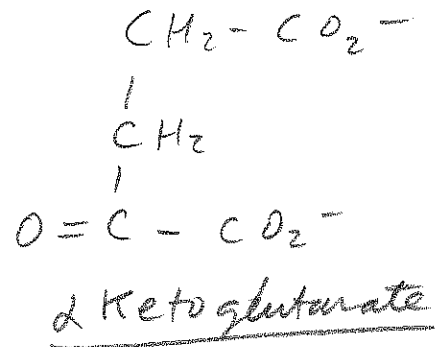 CH₂ - CO₂⁻
CH₂
O = C - CO₂⁻
α Ketoglutarate